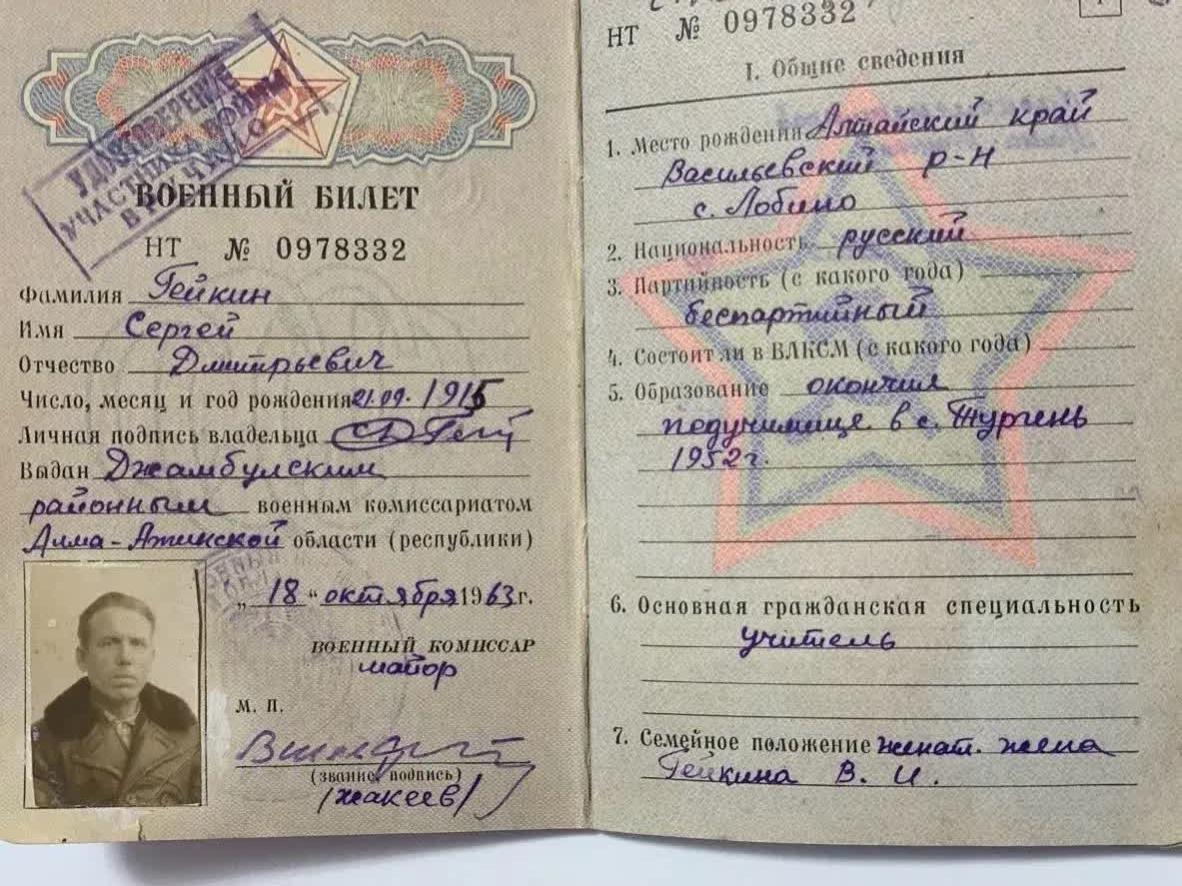 УДОСТОВЕРЕНИЕ
УЧАСТНИКА ВОЙНЫ
ВРУЧЕНО
ВОЕННЫЙ БИЛЕТ
НТ № 0978332
Фамилия Гейкин
Имя Сергей
Отчество Дмитрьевич
Число, месяц и год рождения 21.09. 1915
Личная подпись владельца
Выдан Джамбулским
районным военным комиссариатом
Алма-Атинской области (республики)
„18“ октября 1963 г.
ВОЕННЫЙ КОМИССАР
майор
М. П.
(звание, подпись)
/жакеев/
НТ № 0978332
1
I. Общие сведения
1. Место рождения Алтайский край
Васильевский р-н
с. Лобино
2. Национальность русский
3. Партийность (с какого года)
беспартийный
4. Состоит ли в ВЛКСМ (с какого года)
5. Образование окончил
педучилище в с. Тургень
1952 г.
6. Основная гражданская специальность
учитель
7. Семейное положение женат. жена
Гейкина В. И.